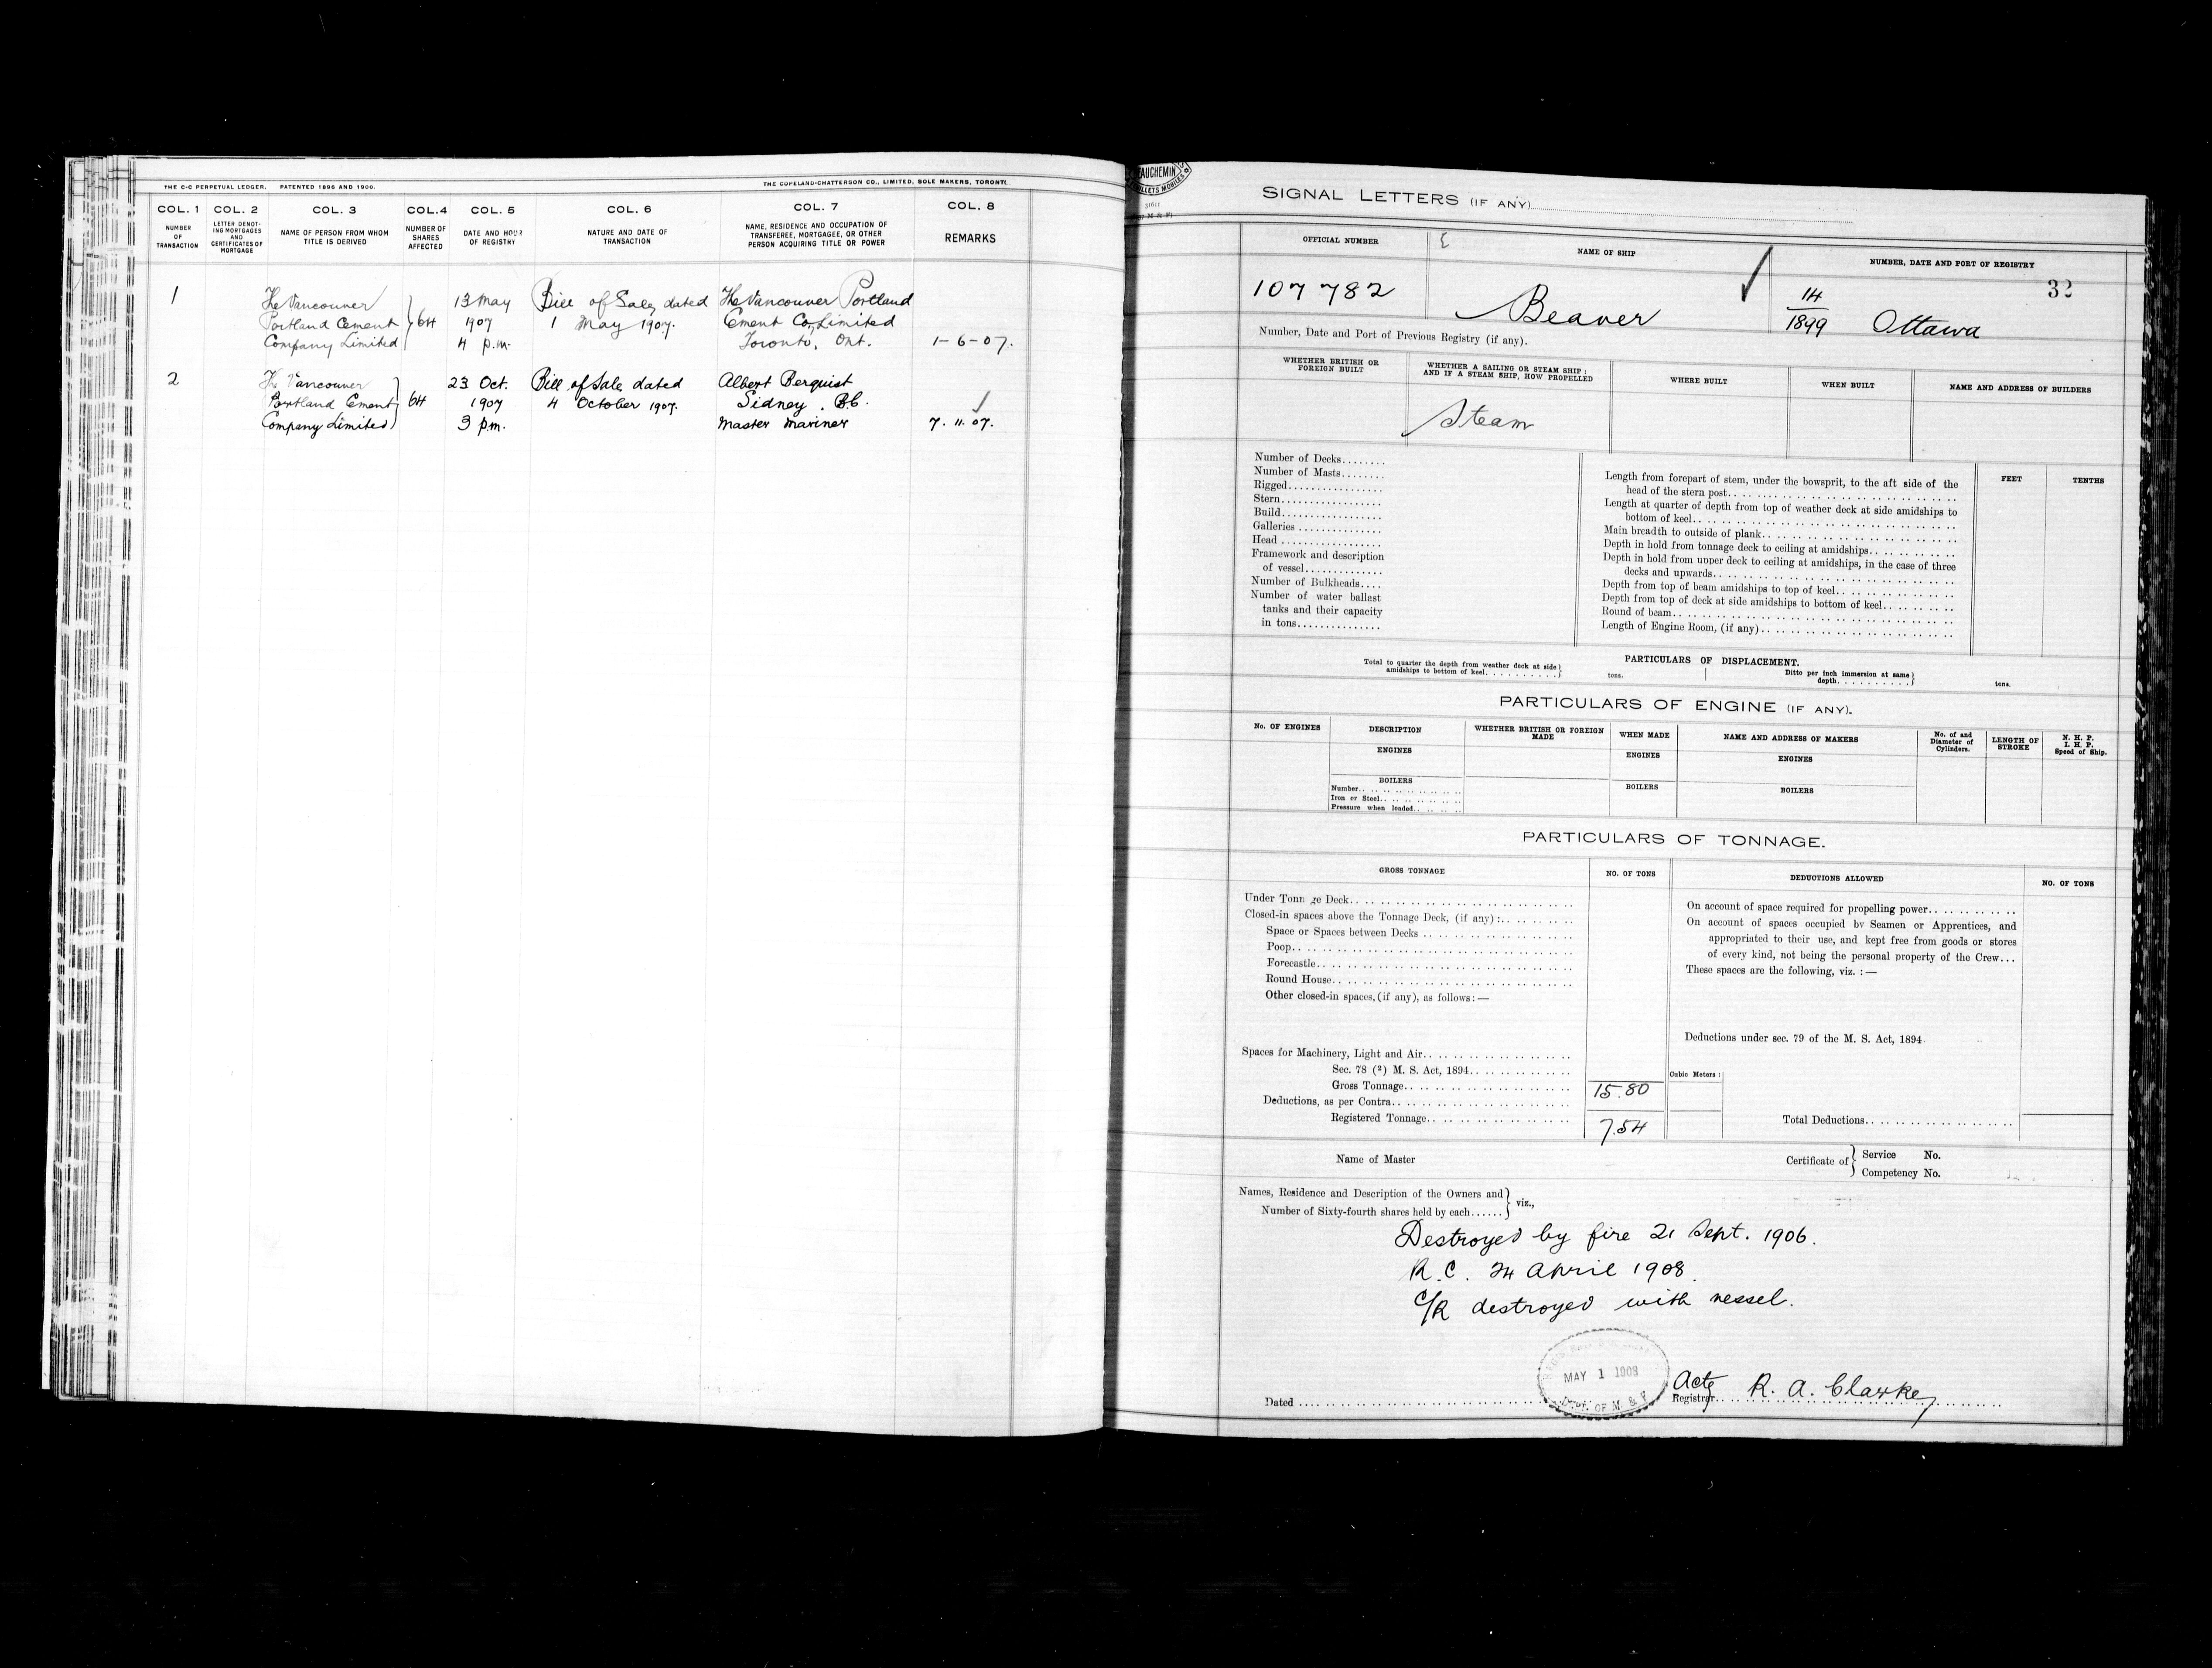 THE C-C PERPETUAL LEDGER. PATENTED 1896 AND 1900.
THE COPELAND-CHATTERSON CO., LIMITED, SOLE MAKERS, TORONTO
COL. 1 COL. 2 COL. 3 COL. 4 COL. 5 COL. 6 COL. 7 COL. 8
NUMBER OF TRANSACTION
LETTER DENOTING MORTGAGES AND CERTIFICATES OF MORTGAGE
NAME OF PERSON FROM WHOM TITLE IS DERIVED
NUMBER OF SHARES AFFECTED
DATE AND HOUR OF REGISTRY
NATURE AND DATE OF TRANSACTION
NAME, RESIDENCE AND OCCUPATION OF TRANSFEREE, MORTGAGEE, OR OTHER PERSON ACQUIRING TITLE OR POWER
REMARKS
1 The Vancouver 13 May Bill of Sale, dated The Vancouver Portland
Portland Cement 64 1907 1 May 1907. Cement Co, Limited
Company Limited 4 p.m. Toronto, Ont. 1-6-07.
2 The Vancouver 23 Oct. Bill of Sale dated Albert Berquist
Portland Cement 64 1907 4 October 1907. Sidney, B.C.
Company Limited 3 p.m. Master Mariner 7.11.07.
BEAUCHEMIN
SIGNAL LETTERS (IF ANY)
OFFICIAL NUMBER NAME OF SHIP NUMBER, DATE AND PORT OF REGISTRY
32
107782 Beaver 14/1899 Ottawa
Number, Date and Port of Previous Registry (if any).
WHETHER BRITISH OR FOREIGN BUILT
WHETHER A SAILING OR STEAM SHIP; AND IF A STEAM SHIP, HOW PROPELLED
WHERE BUILT
WHEN BUILT
NAME AND ADDRESS OF BUILDERS
Steam
Number of Decks........
Number of Masts........
Rigged.................
Stern..................
Build..................
Galleries..............
Head...................
Framework and description
of vessel..............
Number of Bulkheads....
Number of water ballast
tanks and their capacity
in tons................
FEET TENTHS
Length from forepart of stem, under the bowsprit, to the aft side of the
head of the stern post
Length at quarter of depth from top of weather deck at side amidships to
bottom of keel
Main breadth to outside of plank
Depth in hold from tonnage deck to ceiling at amidships
Depth in hold from upper deck to ceiling at amidships, in the case of three
decks and upwards
Depth from top of beam amidships to top of keel
Depth from top of deck at side amidships to bottom of keel
Round of beam
Length of Engine Room, (if any)
PARTICULARS OF DISPLACEMENT.
Total to quarter the depth from weather deck at side
amidships to bottom of keel
tons.
Ditto per inch immersion at same
depth
tons.
PARTICULARS OF ENGINE (IF ANY).
No. OF ENGINES
DESCRIPTION
WHETHER BRITISH OR FOREIGN MADE
WHEN MADE
NAME AND ADDRESS OF MAKERS
No. of and Diameter of Cylinders.
LENGTH OF STROKE
N. H. P.
I. H. P.
Speed of Ship.
ENGINES ENGINES ENGINES
BOILERS BOILERS BOILERS
Number
Iron or Steel
Pressure when loaded
PARTICULARS OF TONNAGE.
GROSS TONNAGE NO. OF TONS DEDUCTIONS ALLOWED NO. OF TONS
Under Tonnage Deck
Closed-in spaces above the Tonnage Deck, (if any):
Space or Spaces between Decks
Poop
Forecastle
Round House
Other closed-in spaces, (if any), as follows:—
Spaces for Machinery, Light and Air
Sec. 78 (2) M. S. Act, 1894
Gross Tonnage 15.80
Deductions, as per Contra
Registered Tonnage 7.54
On account of space required for propelling power
On account of spaces occupied by Seamen or Apprentices, and
appropriated to their use, and kept free from goods or stores
of every kind, not being the personal property of the Crew...
These spaces are the following, viz.:—
Deductions under sec. 79 of the M. S. Act, 1894
Cubic Meters:
Total Deductions
Name of Master
Certificate of Service No.
Competency No.
Names, Residence and Description of the Owners and
Number of Sixty-fourth shares held by each...... viz.,
Destroyed by fire 21 Sept. 1906.
R.C. 24 April 1908.
C/R destroyed with vessel.
MAY 1 1908
DEPT. OF M. & F
Dated
Actg R. A. Clarke
Registrar